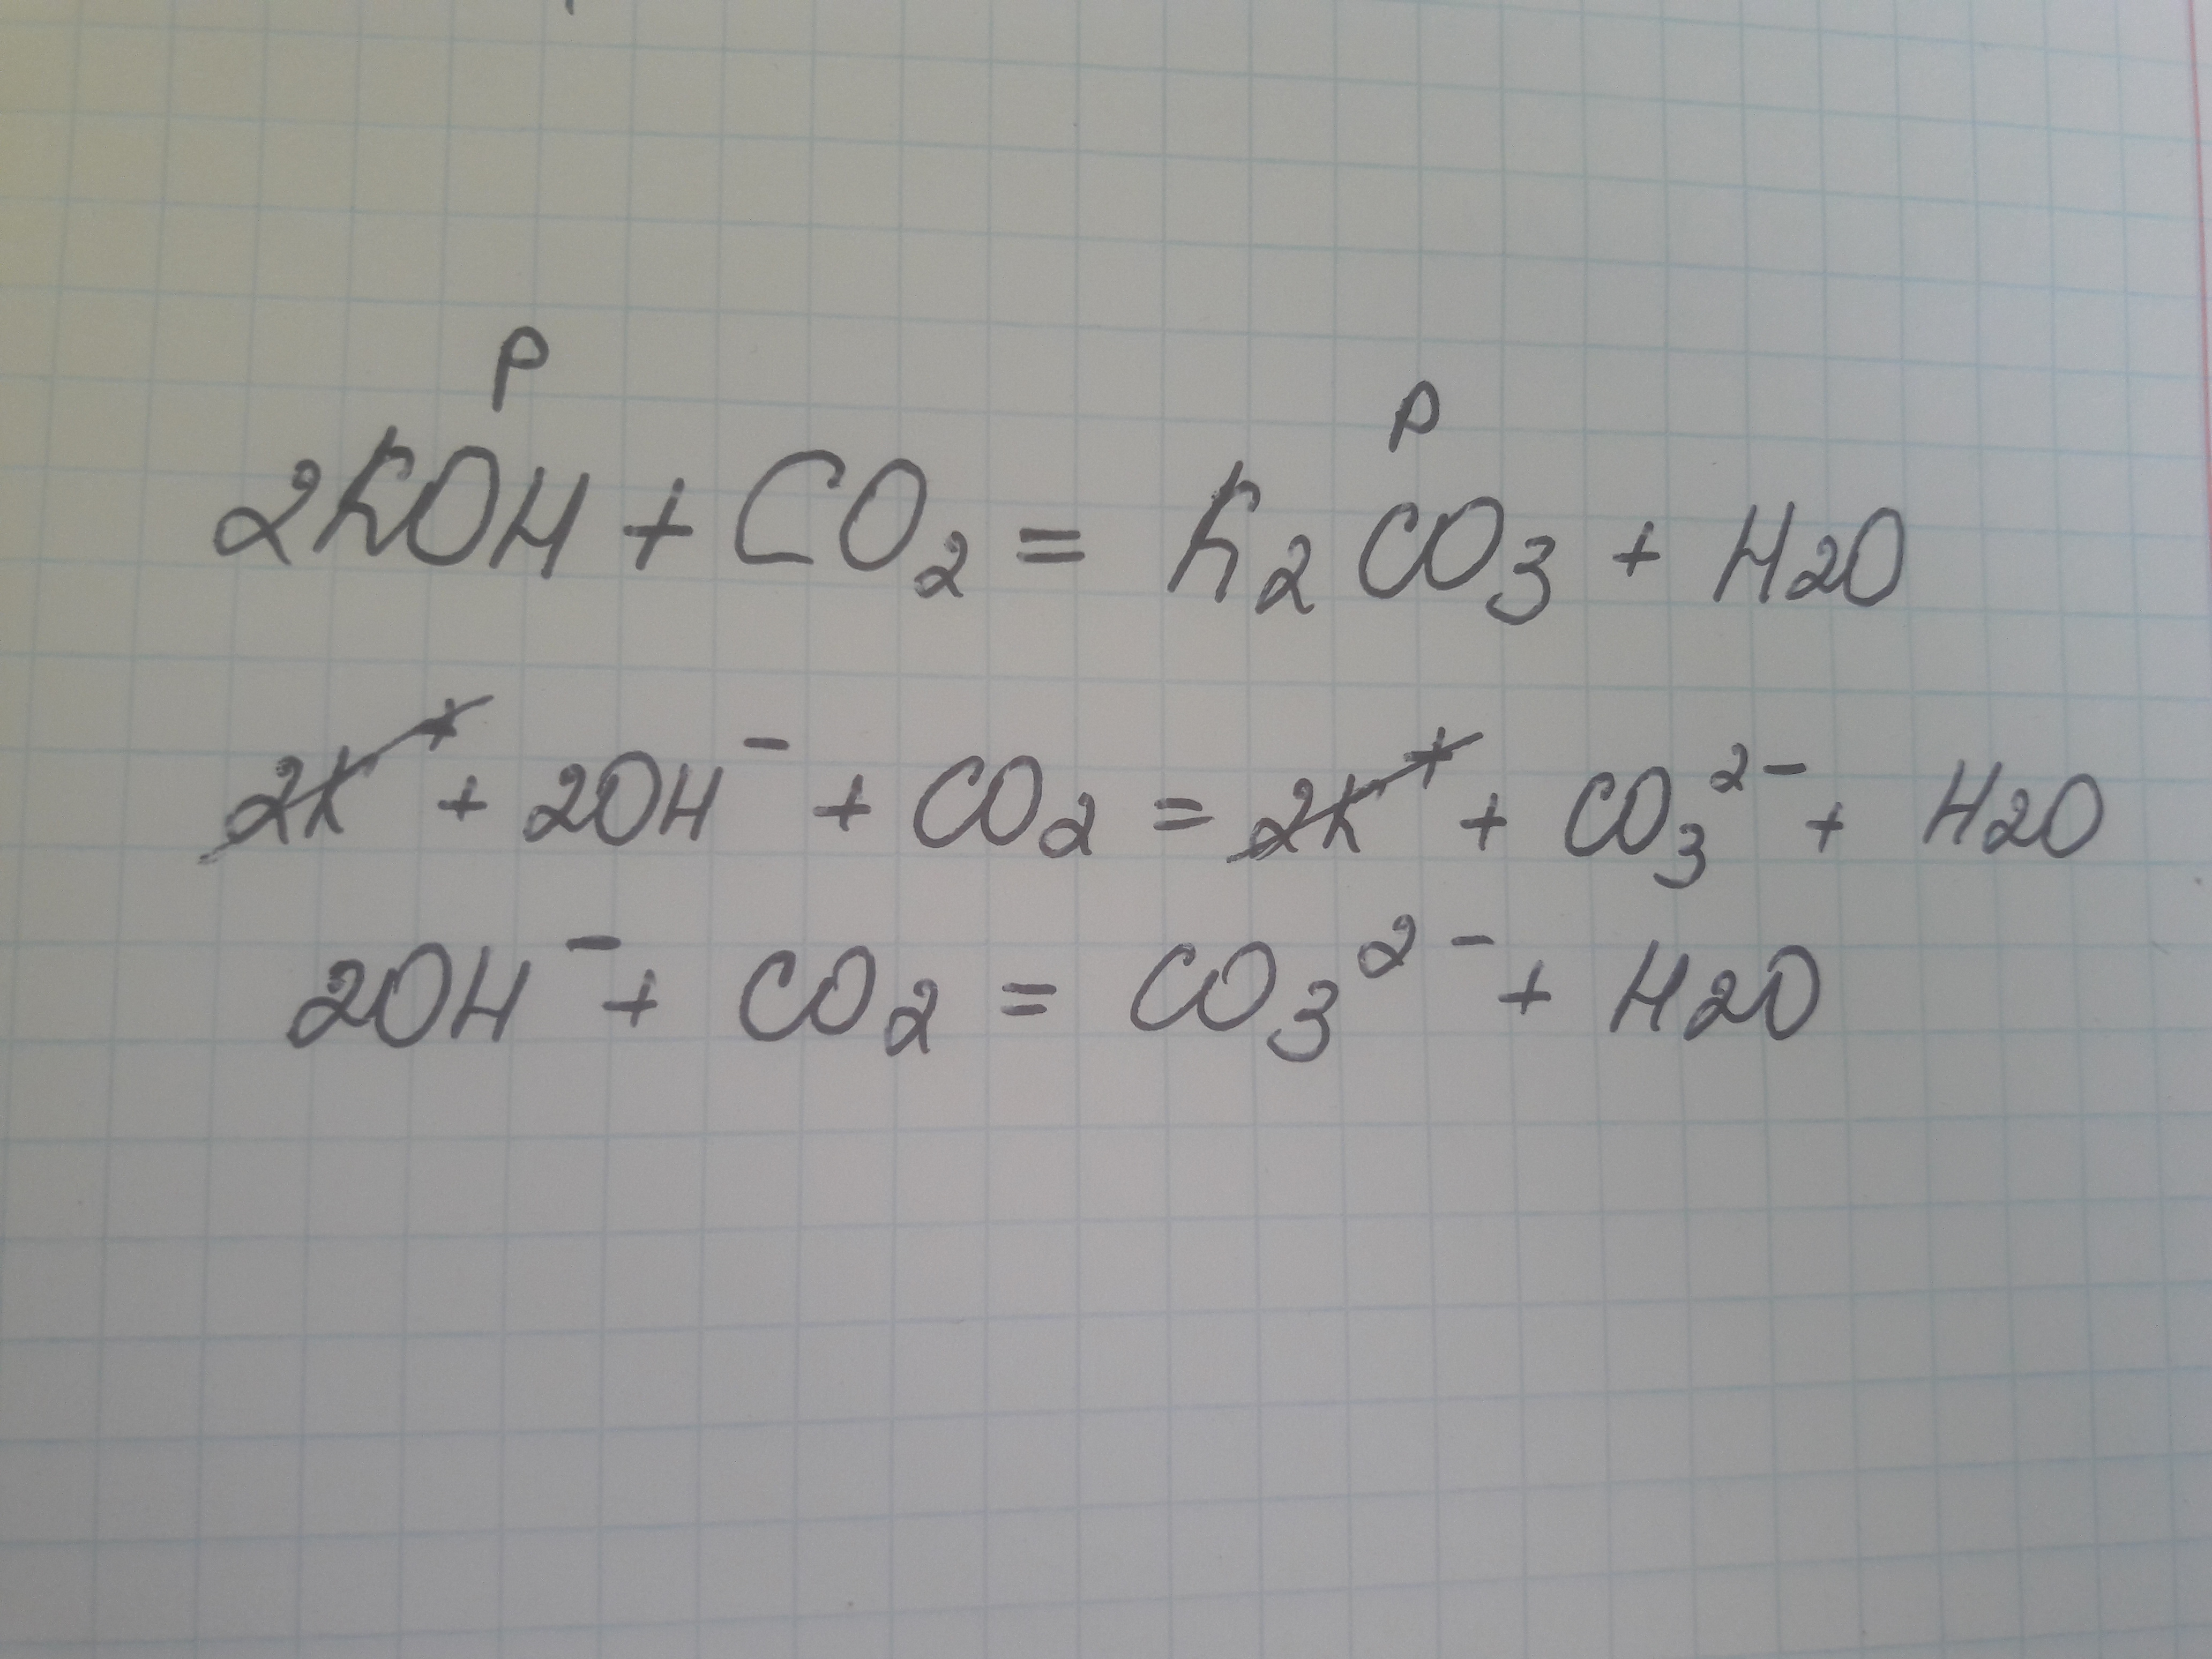 р р
2KOH + CO₂ = K₂CO₃ + H2O
2K⁺ + 2OH⁻ + CO₂ = 2K⁺ + CO₃²⁻ + H2O
2OH⁻ + CO₂ = CO₃²⁻ + H2O